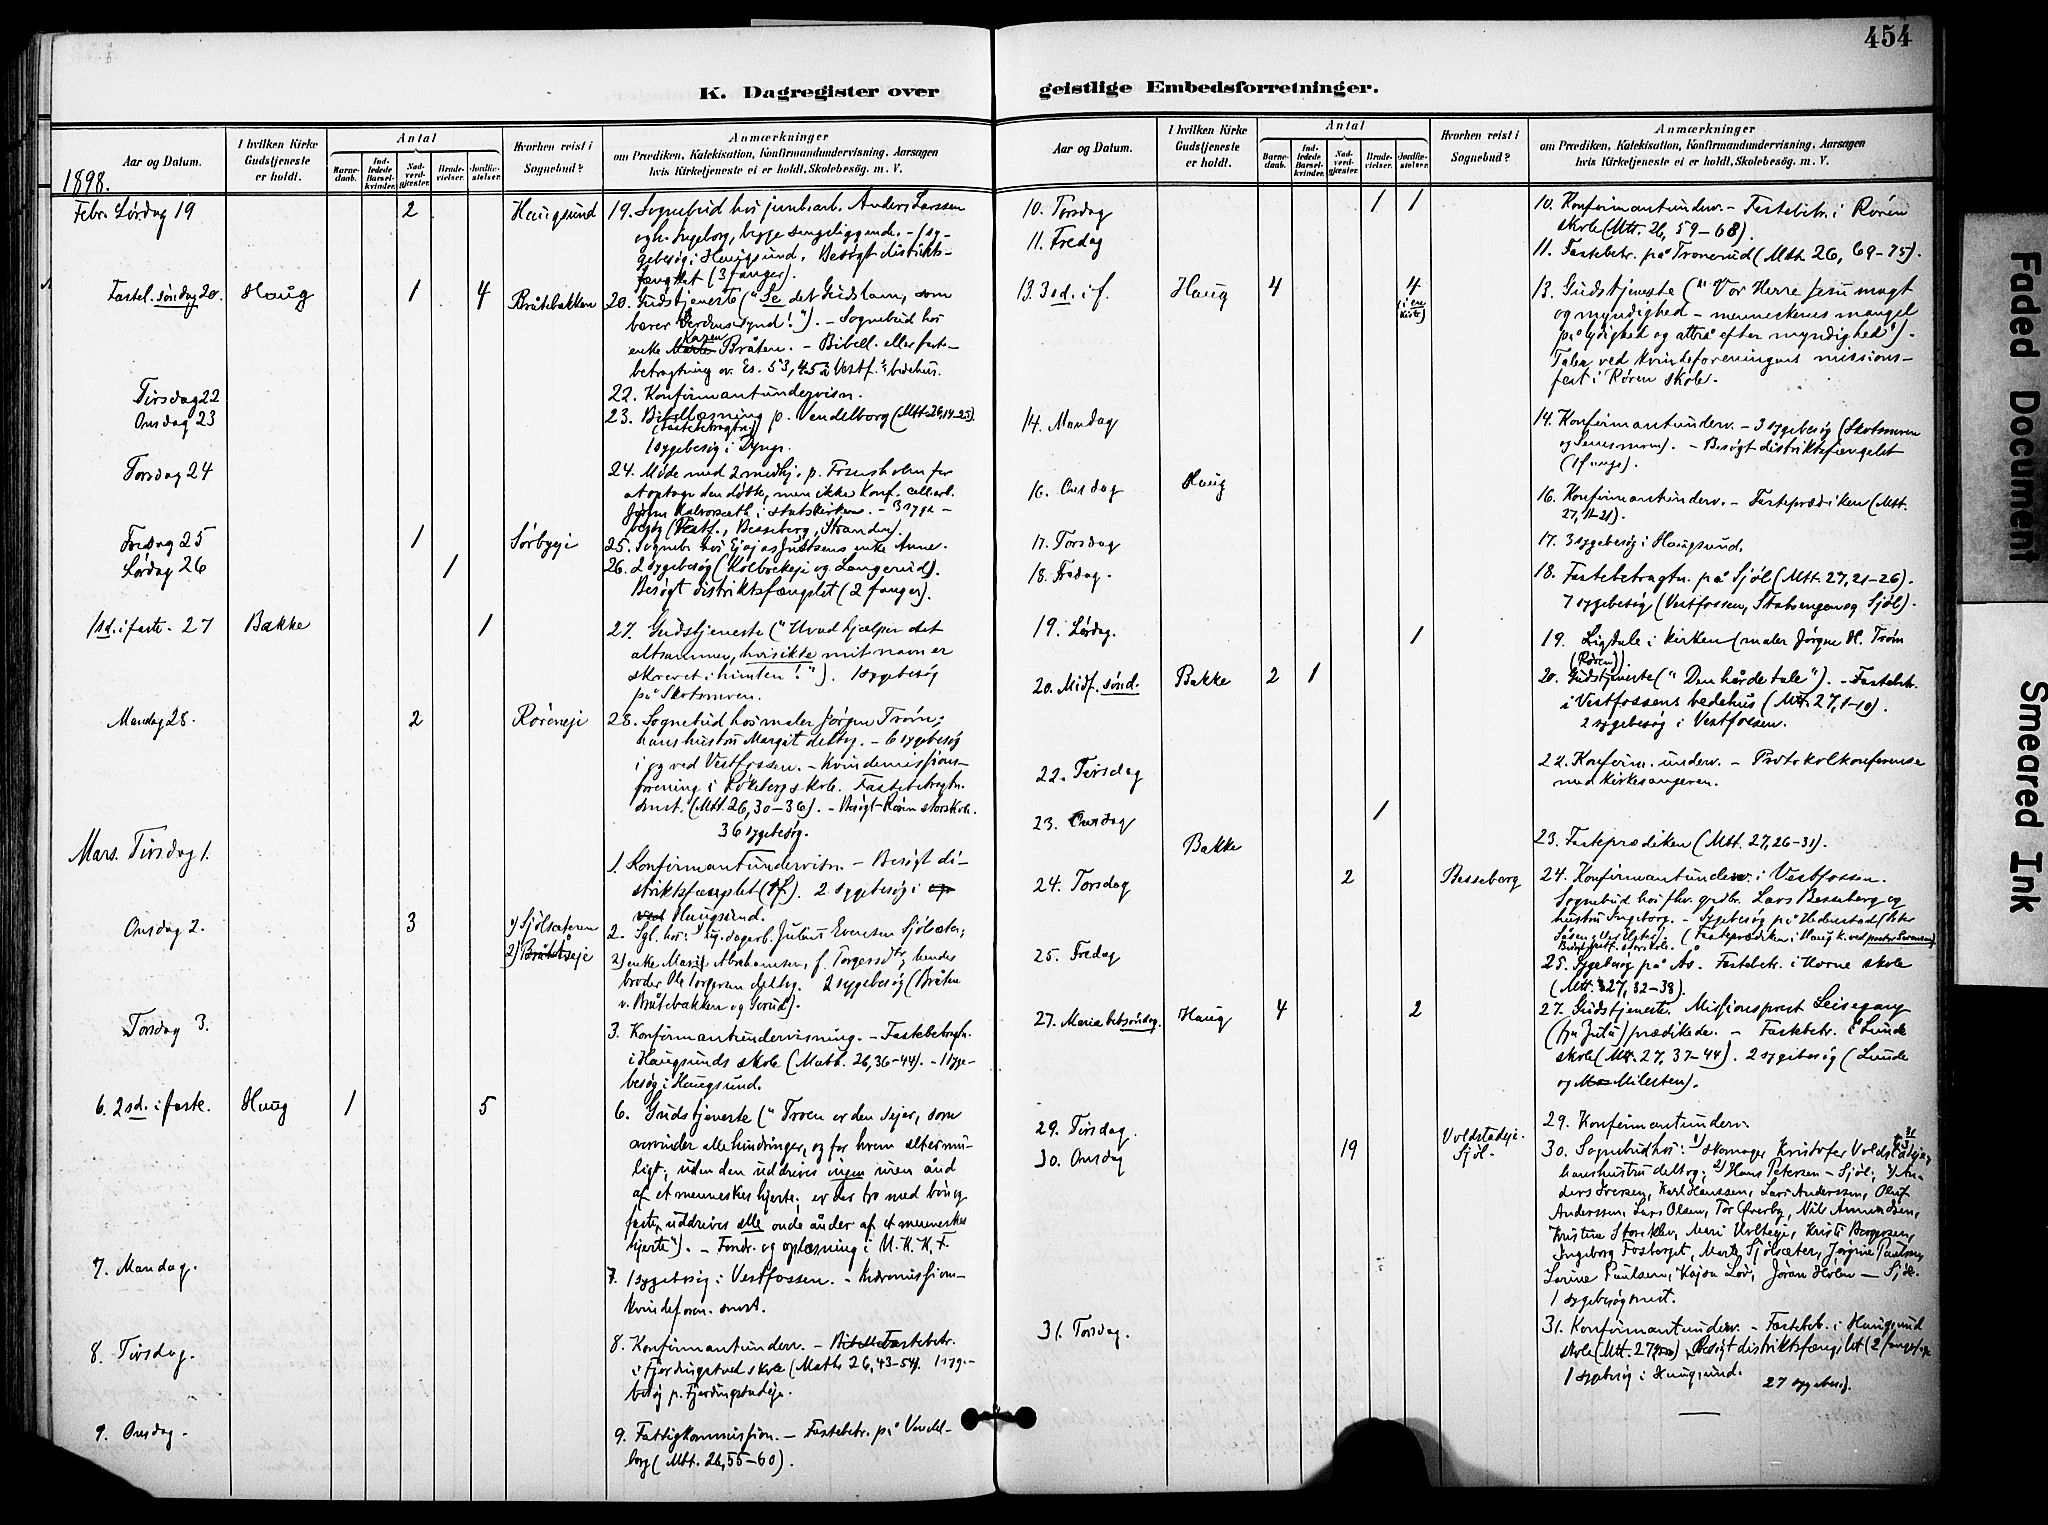 454
K. Dagregister over geistlige Embedsforretninger.
Aar og Datum.
I hvilken Kirke Gudstjeneste er holdt.
Antal
Barne-daab.
Ind-ledede Barsel-kvinder.
Nad-verd-gjester.
Brude-vielser.
Jordfæ-stelser.
Hvorhen reist i Sognebud?
Anmærkninger
om Prædiken, Katekisation, Konfirmandundervisning, Aarsagen
hvis Kirketjeneste ei er holdt, Skolebesøg. m. V.
1898.
Febr. Lørdag 19 2 Haugsund
19. Sognebud hos jernb.arb. Anders Larssen
og h. Ingeborg, begge sengeliggende. – 1 sy-
gebesøg i Haugsund. Besøgt distrikts-
fængslet (3 fanger).
Fastel. søndag 20. Haug 1 4 Bråtebakken
20. Gudstjeneste ("Se det Guds lam, som
bærer verdens synd!"). – Sognebud hos
enke Karen Bråten. – Bibell. eller faste-
betragtning ov. Es. 53, 4-5 i Vestf.s bedehus.
Tirsdag 22
22. Konfirmantundervisn.
Onsdag 23
23. Bibellæsning p. Vendelborg (Mtt. 26, 14-25).
(fastebetragtn.)
1 sygebesøg i
Torsdag 24
24. Møde med 2 medhj. p. for
at optage den døbte, men ikke konf.
i statskirken. – 3 syge-
besøg (Vestf., Besseberg, Stranden).
Fredag 25 1 Sørbyeje
25. Sogneb. hos enke Anne.
Lørdag 26 1
26. 2 sygebesøg (Kolbrekeje og Langerud).
Besøgt distriktsfængslet (2 fanger).
1 sd. i faste. 27 Bakke 1
27. Gudstjeneste ("Hvad hjælper det
altsammen, hvis ikke mit navn er
skrevet i himlen!"). 1 sygebesøg
på Skotsmoen.
Mandag 28. 2 Røreneje
28. Sognebud hos maler Jørgen Trøm;
hans hustru Margit deltog. – 6 sygebesøg
i og ved Vestfossen. – Kvindemissions-
forening i Løkeberg skole. Fastebetragtn.
smst. (Mtt. 26, 30-36). – Besøgt Røren storskole.
36 sygebesøg.
Mars. Tirsdag 1.
1. Konfirmantundervisn. – Besøgt di-
striktsfængslet (1 f.). 2 sygebesøg i og
Vest Haugsund.
Onsdag 2. 3 1) Sjølsæteren
2) Bråtåseje
2. Sgb. hos: 1) ug. dagarb. Julius Evensen Sjølsæter;
2) enke Marie Abrahamsen, f. Torgersdtr, hendes
broder Ole Torgersen deltog. 2 sygebesøg (Bråten
v. Bråtebakken og Gorud).
Torsdag 3.
3. Konfirmantundervisning. – Fastebetragtn.
i Haugsunds skole (Matth. 26, 36-44). – 1 syge-
besøg i Haugsund.
6. 2 sd. i faste. Haug 1 5
6. Gudstjeneste ("Troen er den sejer, som
overvinder alle hindringer, og for hvem alt er mu-
ligt; uden den uddrives ingen uren ånd
af et menneskes hjerte; er der tro med bøn og
faste, uddrives alle onde ånder af et menneskes
hjerte"). – Foredr. og oplæsning i U. K. K. F.
7. Mandag.
7. 1 sygebesøg i Vestfossen. – Indremissions-
kvindeforen. smst.
8. Tirsdag.
8. Konfirmantunderv. – Fastebetr.
i Fjerdingstad skole (Matth. 26, 43-54). 1 syge-
besøg p. Fjerdingstadeje.
9. Onsdag.
9. Fattigkommission. – Fastebetr. på Vendel-
borg (Mtt. 26, 55-60).
Aar og Datum.
I hvilken Kirke Gudstjeneste er holdt.
Antal
Barne-daab.
Ind-ledede Barsel-kvinder.
Nad-verd-gjester.
Brude-vielser.
Jordfæ-stelser.
Hvorhen reist i Sognebud?
Anmærkninger
om Prædiken, Katekisation, Konfirmandundervisning, Aarsagen
hvis Kirketjeneste ei er holdt, Skolebesøg. m. V.
10. Torsdag 1 1
10. Konfirmantunderv. – Fastebetr. i Røren
skole (Mtt. 26, 59-68).
11. Fredag
11. Fastebetr. på Tronerud (Mtt. 26, 69-75).
13. 3 sd. i f. Haug 4 4
(i en kiste)
13. Gudstjeneste ("Vor Herre Jesu magt
og myndighed – menneskenes mangel
på lydighed og attrå efter myndighed").
Tale ved kvindeforeningens missions-
fest i Røren skole.
14. Mandag
14. Konfirmantunderv. – 3 sygebesøg (Skotsmoen
og Semsmoen). – Besøgt distriktsfængslet
(1 fange).
16. Onsdag Haug
16. Konfirmantunderv. – Fasteprædiken (Mtt.
27, 11-21).
17. Torsdag
17. 3 sygebesøg i Haugsund.
18. Fredag.
18. Fastebetragtn. på Sjøl (Mtt. 27, 21-26).
7 sygebesøg (Vestfossen, Stabsengen og Sjøl).
19. Lørdag. 1
19. Ligtale i kirken (maler Jørgen H. Trøm
(Røren)).
20. Midf. sønd. Bakke 2 1
20. Gudstjeneste ("Den hårde tale"). – Fastebetr.
i Vestfossens bedehus (Mtt. 27, 1-10).
2 sygebesøg i Vestfossen.
22. Tirsdag
22. Konfirm. underv. – Protokolkonferense
med kirkesangeren.
23. Onsdag 1
Bakke
23. Fasteprædiken (Mtt. 27, 26-31).
24. Torsdag 2 Besseberg
24. Konfirmantunderv. i Vestfossen.
Sognebud hos fhv. grdbr. Lars Besseberg og
hustru Ingeborg. – Sygebesøg på Hedenstad (Peter
(Fasteprædiken i Haug k. ved pastor Sørensen).
Besøgt Vestf. storskole.
25. Fredag
25. Sygebesøg på Ås. Fastebetr. i Horne skole
(Mtt. 27, 32-38).
27. Maria bebsøndag. Haug 4 2
27. Gudstjeneste. Missionsprest Leisegang
(fra Zulu) prædikede. – Fastebetr. i Lunde
skole (Mtt. 27, 37-44). 2 sygebesøg (Lunde
og Milesten).
29. Tirsdag.
29. Konfirmantunderv.
30. Onsdag 19 Voldstadeje.
Sjøl.
30. Sognebud hos: 1) skomager Kristofer Voldstadeje,
hans hustru deltog; 2) Hans Petersen – Sjøl; 3) An-
ders Iversen, Karl Hanssen, Lars Anderssen, Oluf
Anderssen, Lars Olsen, Tor Øverby, Nils Amundsen,
Kristine Storeklev, Mari Uvlteje, Kristi
Ingeborg Fosberget, Marte Sjølsæter, Jørgine Paulsen,
Lorine Paulsen, Kajsa Lov, Jøran Holm – Sjøl.
1 sygebesøg smst.
31. Torsdag.
31. Konfirmantunderv. – Fastebetr. i Haugsund
skole (Mtt. 27, Besøgt distriktsfængslet (2 fanger).
1 sygebesøg i Haugsund.
27 sygebesøg.
Faded Document
Smeared Ink